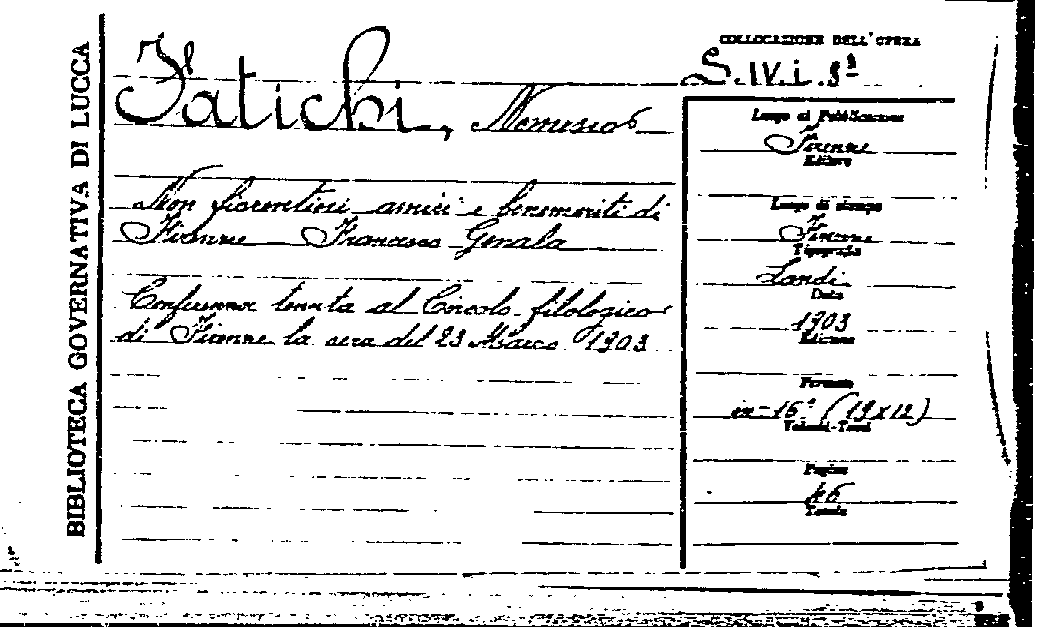 BIBLIOTECA GOVERNATIVA DI LUCCA
Fatichi, Nemesio
Non fiorentini amici e benemeriti di
Firenze Francesco Genala
Conferenza tenuta al Circolo filologico
di Firenze la sera del 23 Marzo 1903
COLLOCAZIONE DELL'OPERA
S.IV.i.
Luogo di Pubblicazione
Firenze
Editore
Luogo di stampa
Firenze
Tipografia
Landi
Data
1903
Edizione
Formato
in-16° (19x12)
Volumi-Tomi
Pagine
46
Tavole